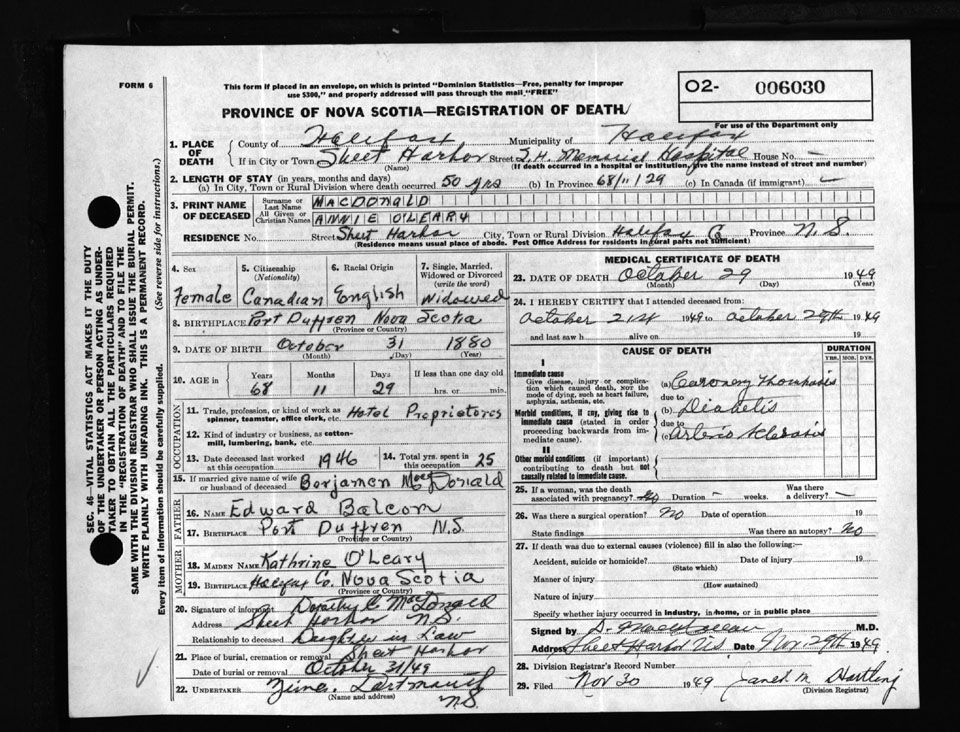 FORM 6
This form if placed in an envelope, on which is printed "Dominion Statistics—Free, penalty for improper
use $300," and properly addressed will pass through the mail "FREE"
O2- 006030
PROVINCE OF NOVA SCOTIA—REGISTRATION OF DEATH
For use of the Department only
1. PLACE OF DEATH
County of Halifax Municipality of Halifax
If in City or Town Sheet Harbor Street S.H. Memorial Hospital House No. —
(Name) (If death occurred in a hospital or institution, give the name instead of street and number)
2. LENGTH OF STAY (in years, months and days)
(a) In City, Town or Rural Division where death occurred 50 yrs (b) In Province 68/11/29 (c) In Canada (if immigrant) —
3. PRINT NAME OF DECEASED
Surname or Last Name MACDONALD
All Given or Christian Names ANNIE O'LEARY
RESIDENCE No. Street Sheet Harbor City, Town or Rural Division Halifax Co Province N.S.
(Residence means usual place of abode. Post Office Address for residents in rural parts not sufficient)
4. Sex Female
5. Citizenship (Nationality) Canadian
6. Racial Origin English
7. Single, Married, Widowed or Divorced (write the word) Widowed
8. BIRTHPLACE Port Duffren Nova Scotia
(Province or Country)
9. DATE OF BIRTH October 31 1880
(Month) (Day) (Year)
10. AGE in Years Months Days If less than one day old
68 11 29 hrs. or min.
OCCUPATION
11. Trade, profession, or kind of work as spinner, teamster, office clerk, etc. Hotel Proprietores
12. Kind of industry or business, as cotton-mill, lumbering, bank, etc.
13. Date deceased last worked at this occupation 1946
14. Total yrs. spent in this occupation 25
15. If married give name of wife or husband of deceased Benjamen MacDonald
FATHER
16. Name Edward Balcom
17. Birthplace Port Duffren N.S.
(Province or Country)
MOTHER
18. Maiden Name Kathrine O'Leary
19. Birthplace Halifax Co. Nova Scotia
(Province or Country)
20. Signature of informant Dorothy C MacDonald
Address Sheet Harbor N.S.
Relationship to deceased Daughter in Law
21. Place of burial, cremation or removal Sheet Harbor
Date of burial or removal October 31/49
22. UNDERTAKER Dartmouth
(Name and address) N.S.
MEDICAL CERTIFICATE OF DEATH
23. DATE OF DEATH October 29 1949
(Month) (Day) (Year)
24. I HEREBY CERTIFY that I attended deceased from:
October 21st 1949 to October 29th 1949
and last saw h alive on 19
CAUSE OF DEATH
DURATION
YRS. MOS. DYS.
I
Immediate cause
Give disease, injury or complication which caused death, not the mode of dying, such as heart failure, asphyxia, asthenia, etc.
(a) Coronery Thombosis
due to
Morbid conditions, if any, giving rise to immediate cause (stated in order proceeding backwards from immediate cause).
(b) Diabetis
due to
(c) Arterio sclerosis
II
Other morbid conditions (if important) contributing to death but not causally related to immediate cause.
25. If a woman, was the death associated with pregnancy? No Duration — weeks. Was there a delivery? —
26. Was there a surgical operation? No Date of operation 19
State findings Was there an autopsy? No
27. If death was due to external causes (violence) fill in also the following:—
Accident, suicide or homicide? Date of injury 19
(State which)
Manner of injury
(How sustained)
Nature of injury
Specify whether injury occurred in industry, in home, or in public place
Signed by M.D.
Address Sheet Harbor N.S. Date Nov. 29th 1949
28. Division Registrar's Record Number
29. Filed Nov 30 1949 Janet M Hartling
(Division Registrar)
SEC. 46—VITAL STATISTICS ACT MAKES IT THE DUTY
OF THE UNDERTAKER OR PERSON ACTING AS UNDER-
TAKER TO OBTAIN ALL THE PARTICULARS REQUIRED
IN THE "REGISTRATION OF DEATH" AND TO FILE THE
SAME WITH THE DIVISION REGISTRAR WHO SHALL ISSUE THE BURIAL PERMIT.
WRITE PLAINLY WITH UNFADING INK. THIS IS A PERMANENT RECORD.
Every item of information should be carefully supplied. (See reverse side for instructions.)